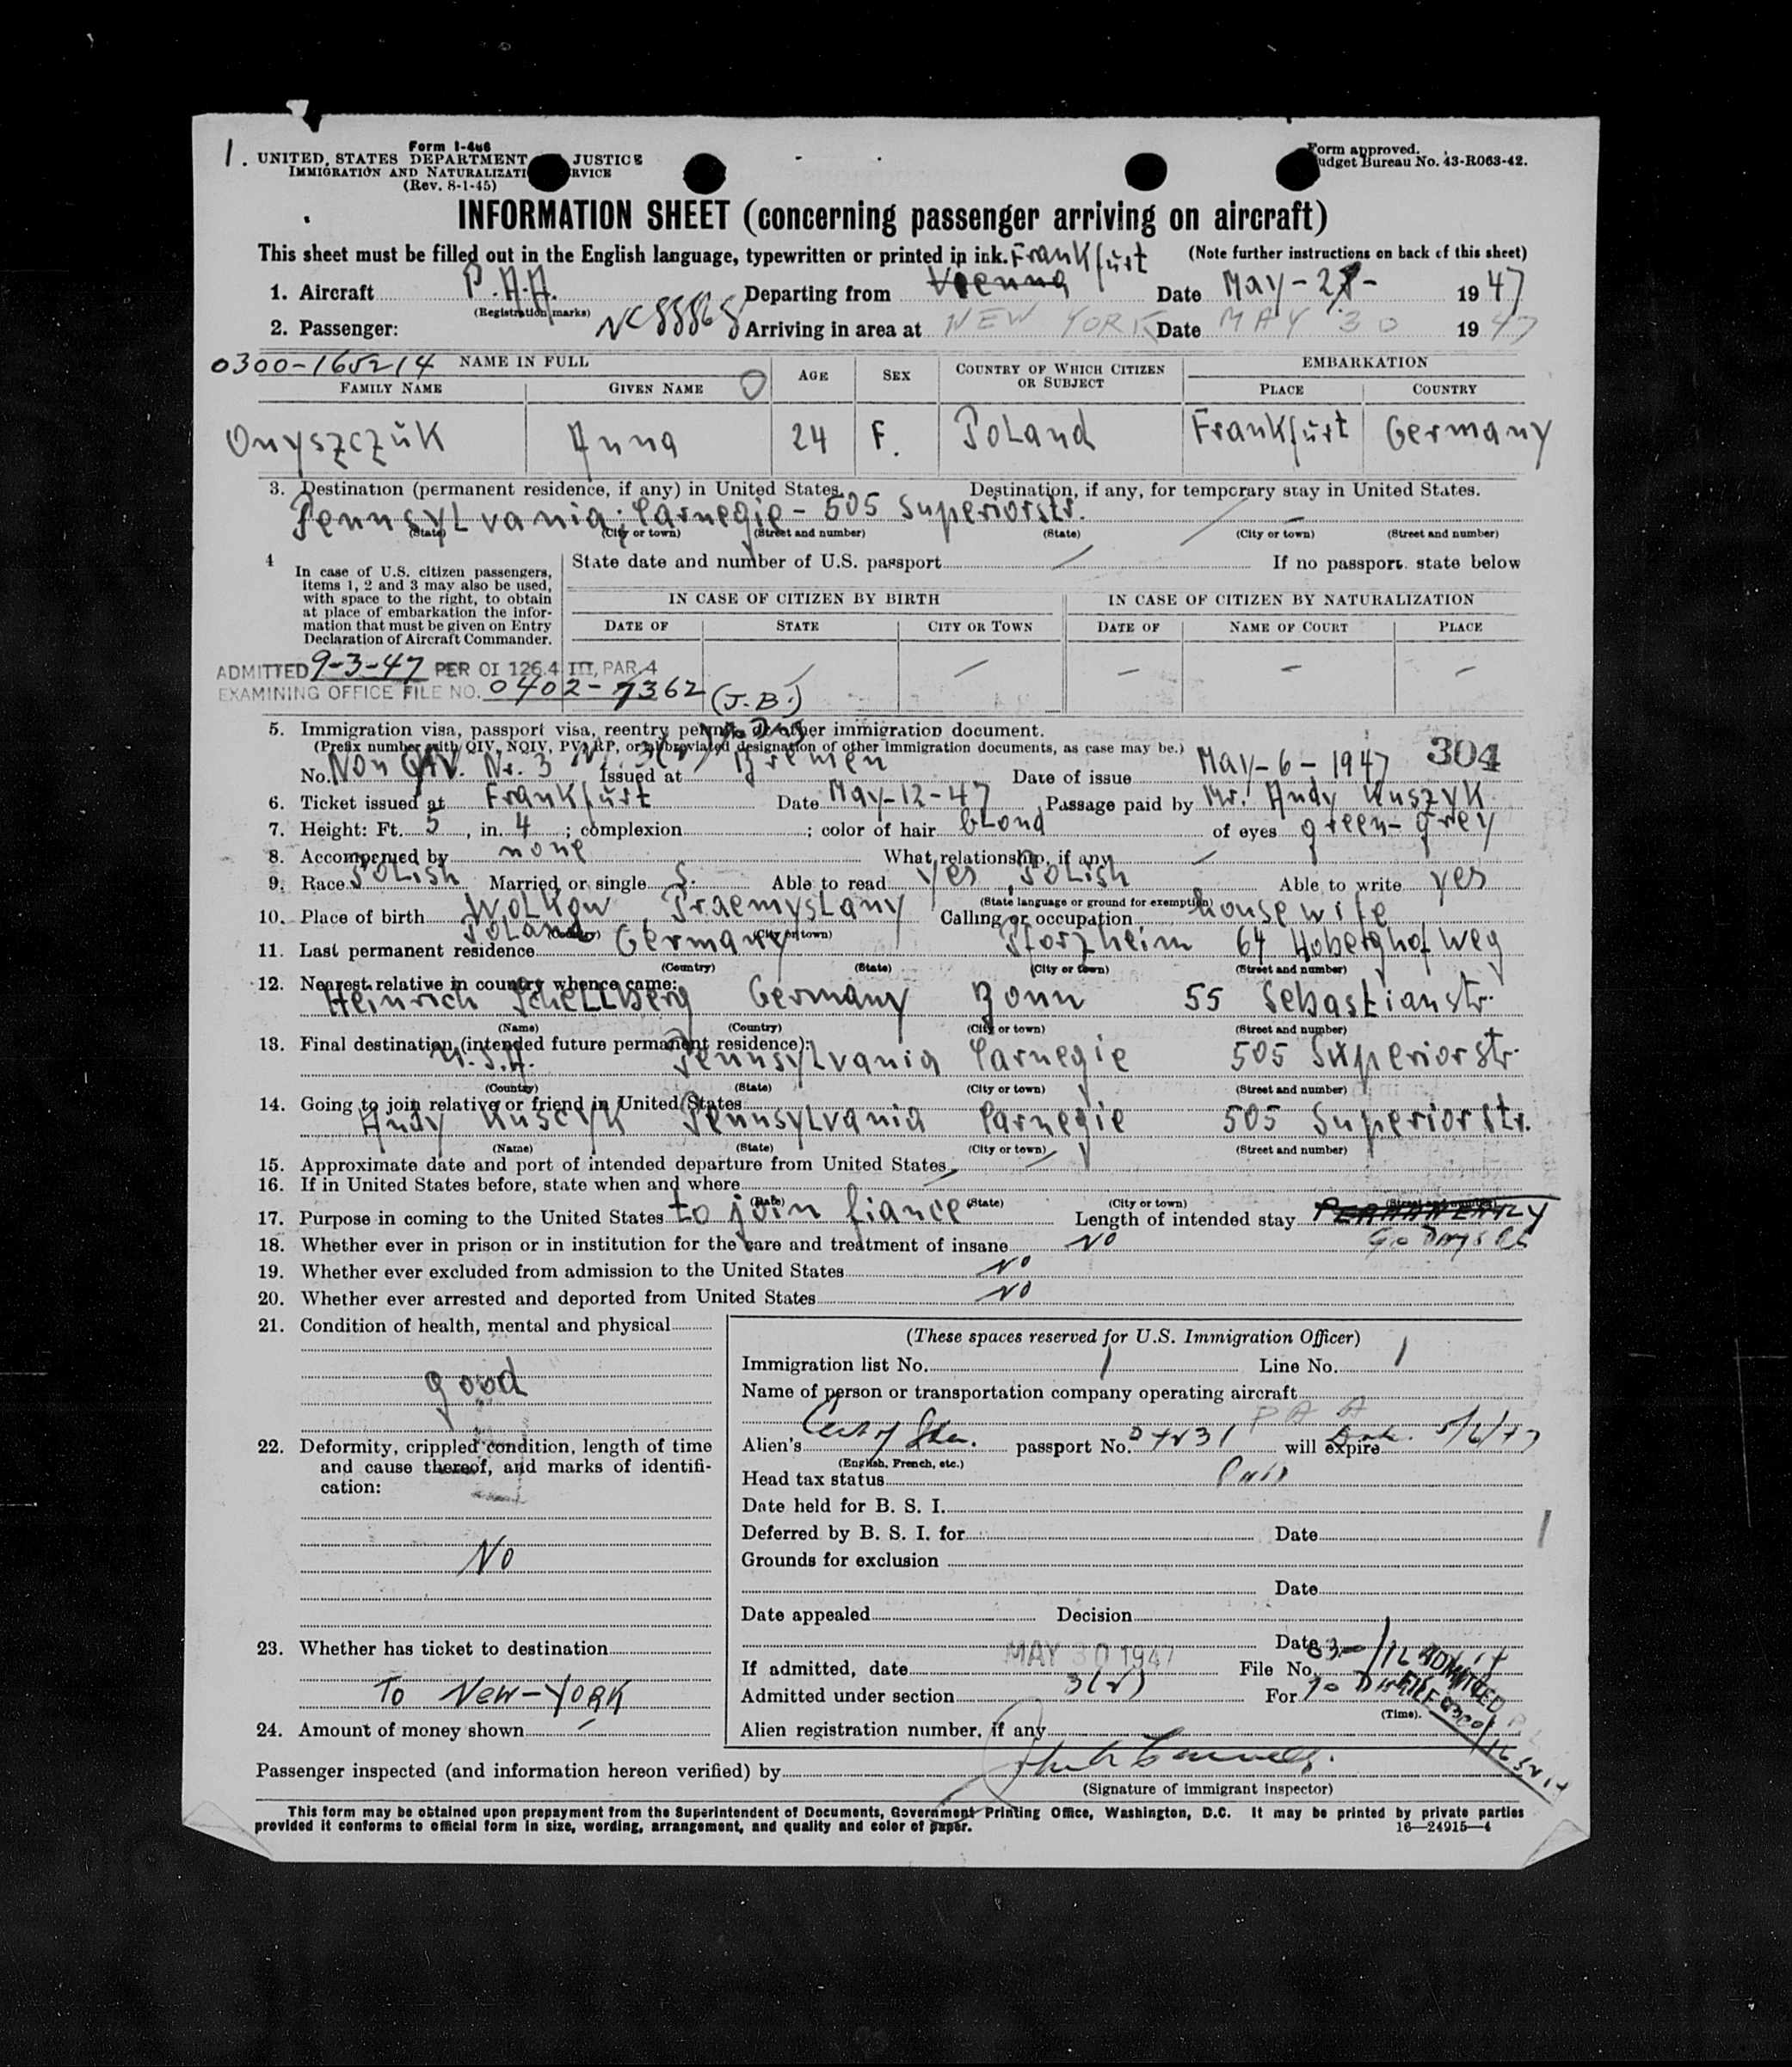 1.
Form I-466
UNITED STATES DEPARTMENT JUSTICE
IMMIGRATION AND NATURALIZATI RVICE
(Rev. 8-1-45)
Form approved.
udget Bureau No. 43-R063-42.
INFORMATION SHEET (concerning passenger arriving on aircraft)
This sheet must be filled out in the English language, typewritten or printed in ink. (Note further instructions on back of this sheet)
Frankfurt
1. Aircraft P.A.A. Departing from Vienna Date May-27- 1947
(Registration marks)
2. Passenger: NC88868 Arriving in area at NEW YORK Date MAY 30 1947
0300-165214 NAME IN FULL AGE SEX COUNTRY OF WHICH CITIZEN OR SUBJECT EMBARKATION
FAMILY NAME GIVEN NAME PLACE COUNTRY
Onyszczuk Anna 24 F. Poland Frankfurt Germany
3. Destination (permanent residence, if any) in United States. Destination, if any, for temporary stay in United States.
Pennsylvania; Carnegie - 505 Superiorstr.
(State) (City or town) (Street and number) (State) (City or town) (Street and number)
4 In case of U.S. citizen passengers, items 1, 2 and 3 may also be used, with space to the right, to obtain at place of embarkation the information that must be given on Entry Declaration of Aircraft Commander.
State date and number of U.S. passport If no passport. state below
IN CASE OF CITIZEN BY BIRTH IN CASE OF CITIZEN BY NATURALIZATION
DATE OF STATE CITY OR TOWN DATE OF NAME OF COURT PLACE
ADMITTED 9-3-47 PER OI 126.4 III, PAR 4
EXAMINING OFFICE FILE NO. 0402-7362 (J.B.)
5. Immigration visa, passport visa, reentry permit or other immigration document.
(Prefix number with QIV, NQIV, PV, RP, or abbreviated designation of other immigration documents, as case may be.)
No. Non QIV. Nr. 3 Issued at Bremen Date of issue May-6-1947 304
6. Ticket issued at Frankfurt Date May-12-47 Passage paid by Mr. Andy Kuszyk
7. Height: Ft. 5, in. 4; complexion ; color of hair blond of eyes green-grey
8. Accompanied by none What relationship, if any
9. Race Polish Married or single S. Able to read yes, Polish Able to write yes
(State language or ground for exemption)
10. Place of birth Wolkow, Praemyslany Calling or occupation housewife
Poland
(Country) (City or town)
11. Last permanent residence Germany Pforzheim 64 Hoberghof Weg
(Country) (State) (City or town) (Street and number)
12. Nearest relative in country whence came:
Heinrich Schellberg Germany Bonn 55 Sebastianstr.
(Name) (Country) (City or town) (Street and number)
13. Final destination (intended future permanent residence):
U.S.A. Pennsylvania Carnegie 505 Superiorstr.
(Country) (State) (City or town) (Street and number)
14. Going to join relative or friend in United States
Andy Kusczyk Pennsylvania Carnegie 505 Superiorstr.
(Name) (State) (City or town) (Street and number)
15. Approximate date and port of intended departure from United States
16. If in United States before, state when and where
(Date) (State) (City or town) (Street and number)
17. Purpose in coming to the United States to join fiance Length of intended stay PERMANENTLY
18. Whether ever in prison or in institution for the care and treatment of insane NO
19. Whether ever excluded from admission to the United States NO
20. Whether ever arrested and deported from United States NO
21. Condition of health, mental and physical
good
22. Deformity, crippled condition, length of time and cause thereof, and marks of identification:
NO
23. Whether has ticket to destination
To New-YORK
24. Amount of money shown
(These spaces reserved for U.S. Immigration Officer)
Immigration list No. 1 Line No. 1
Name of person or transportation company operating aircraft
PAA
Alien's passport No. will expire
(English, French, etc.)
Head tax status Paid
Date held for B. S. I.
Deferred by B. S. I. for Date
Grounds for exclusion
Date
Date appealed Decision
Date
If admitted, date MAY 30 1947 File No.
Admitted under section 3(2) For
(Time).
ADMITTED
FILE 0300/165214
Alien registration number, if any
Passenger inspected (and information hereon verified) by
(Signature of immigrant inspector)
This form may be obtained upon prepayment from the Superintendent of Documents, Government Printing Office, Washington, D.C. It may be printed by private parties
provided it conforms to official form in size, wording, arrangement, and quality and color of paper. 16—24915—4